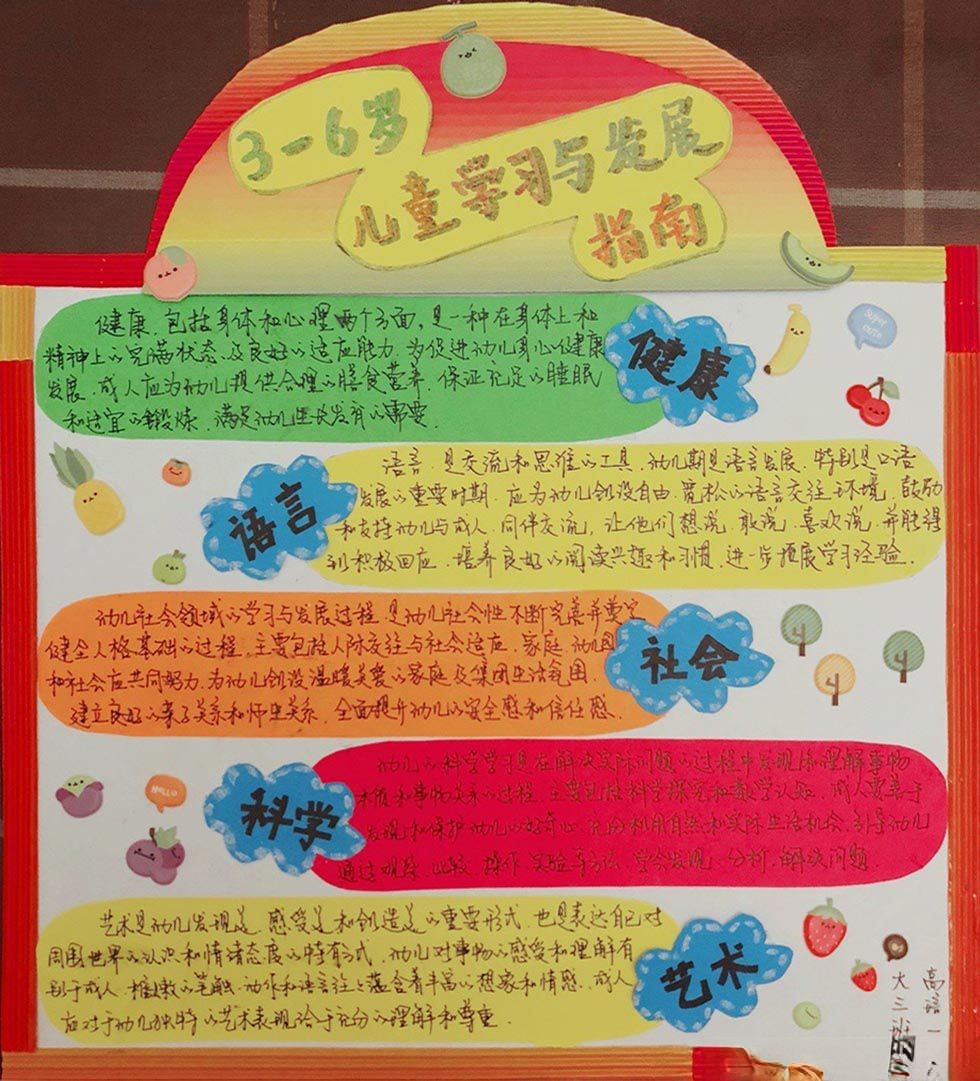 3-6岁
儿童学习与发展
指南
健康,包括身体和心理两个方面,是一种在身体上和
精神上的完满状态及良好的适应能力.为促进幼儿身心健康
发展.成人应为幼儿提供合理的膳食营养.保证充足的睡眠
和适宜的锻炼.满足幼儿生长发育的需要.
健康
SUPER
CUTE
语言
语言.是交流和思维的工具.幼儿期是语言发展.特别是口语
发展的重要时期.应为幼儿创设自由.宽松的语言交往环境.鼓励
和支持幼儿与成人.同伴交流,让他们想说.敢说.喜欢说.并能得
到积极回应.培养良好的阅读兴趣和习惯.进一步拓展学习经验.
幼儿社会领域的学习与发展过程.是幼儿社会性不断完善并奠定
健全人格基础的过程.主要包括人际交往与社会适应.家庭.幼儿园
和社会应共同努力.为幼儿创设温暖关爱的家庭及集团生活氛围.
建立良好的亲子关系和师生关系.全面提升幼儿的安全感和信任感.
社会
HELLO
科学
幼儿的科学学习是在解决实际问题的过程中发现和理解事物
本质和事物关系的过程.主要包括科学探究和数学认知.成人需善于
发现和保护幼儿的好奇心.充分利用自然和实际生活机会.引导幼儿
通过观察.比较.操作.实验等方法.学会发现.分析.解决问题.
艺术是幼儿发现美.感受美和创造美的重要形式.也是表达自己对
周围世界的认识和情绪态度的特有形式.幼儿对事物的感受和理解有
别于成人.稚嫩的笔触.动作和语言往往蕴含着丰富的想象和情感.成人
应对于幼儿独特的艺术表现给于充分的理解和尊重.
艺术
大三班